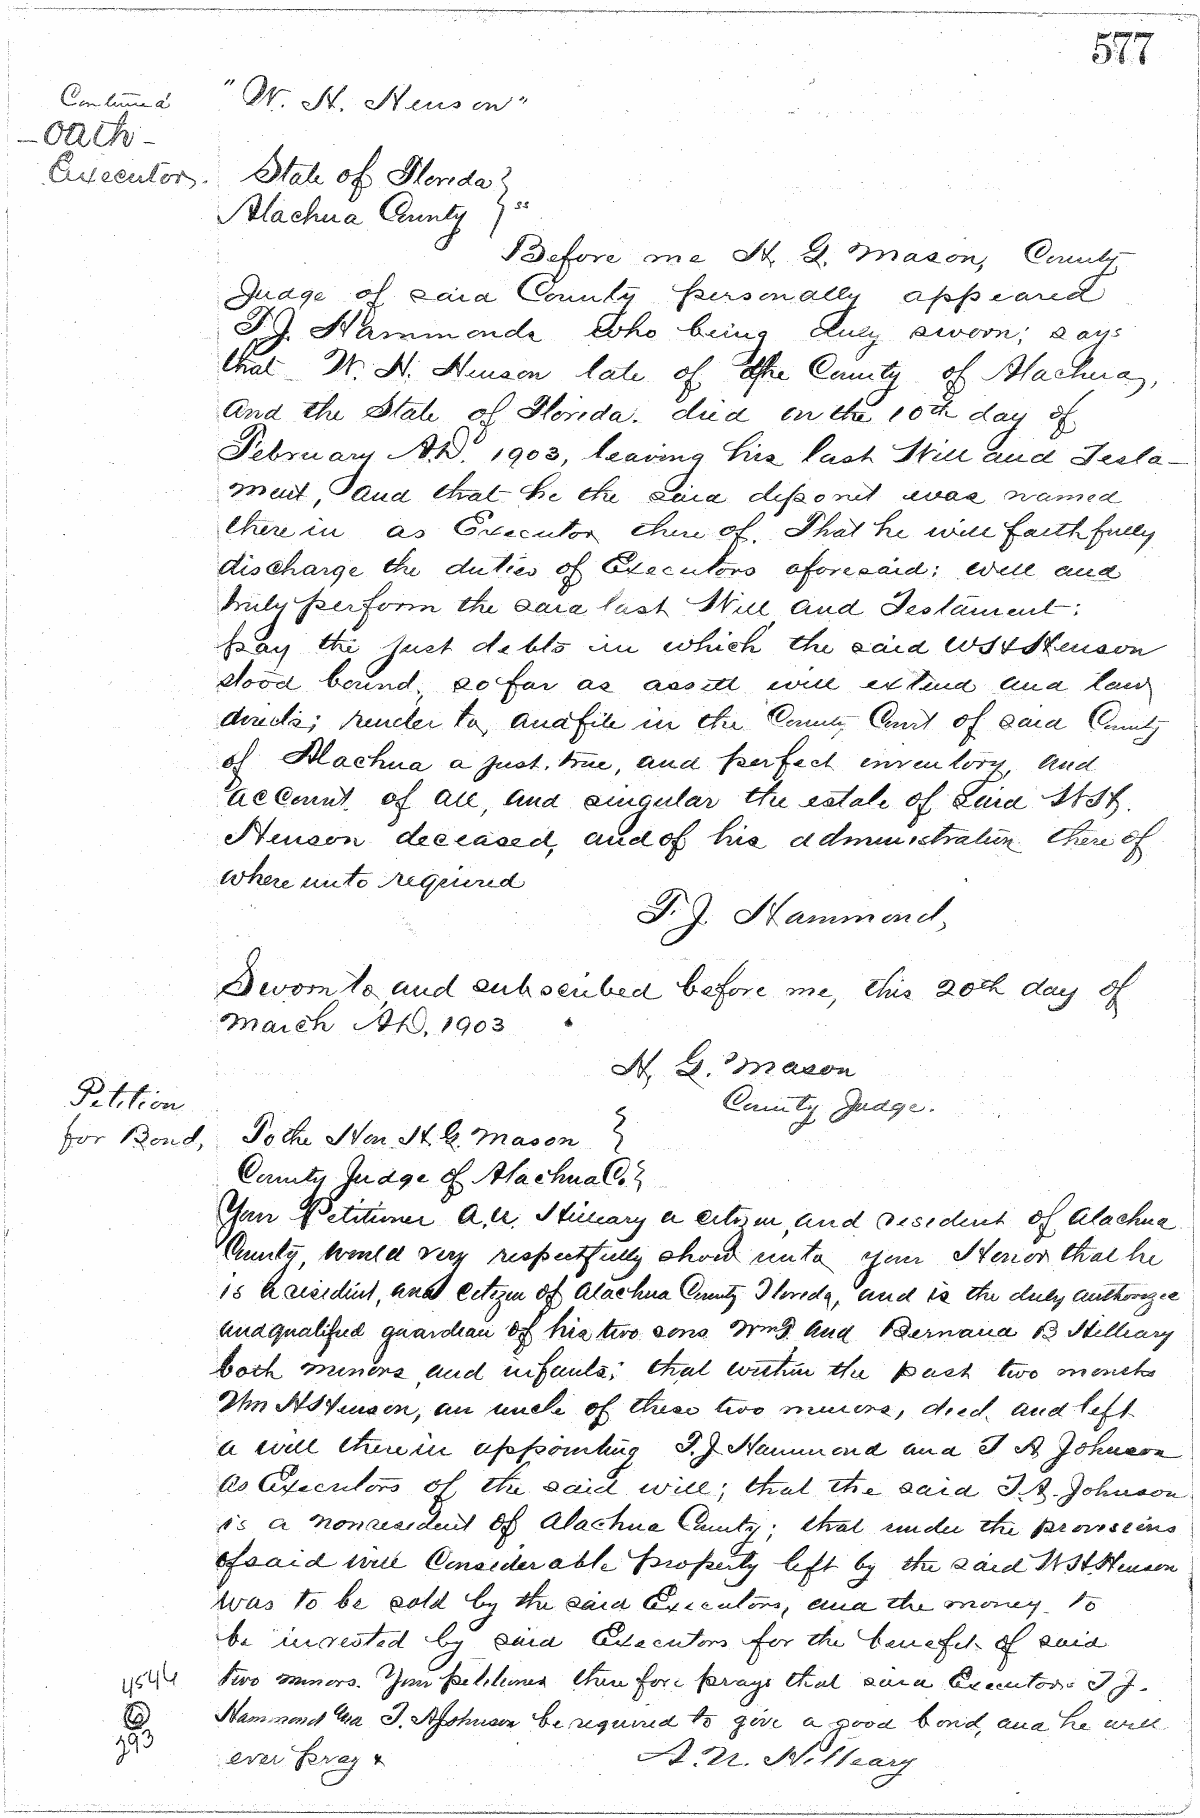 577
Continued "W. H. Henson"
- Oath -
Executor. State of Florida }
Alachua County } ss
Before me H. G. Mason, County
Judge of said County personally appeared
T. J. Hammonds who being duly sworn; says
that W. H. Henson late of the County of Alachua,
and the State of Florida. died on the 10th day of
February A.D. 1903, leaving his last Will and Testa-
ment, and that he the said deponit was named
therein as Executor there of. That he will faithfully
discharge the duties of Executors aforesaid; well and
truly perform the said last Will and Testament;
pay the just debts in which the said W H Henson
stood bound, so far as assett will extend and law
directs; render to, and file in the County Court of said County
of Alachua a just, true, and perfect inventory, and
account, of all, and singular the estate of said W H.
Henson deceased, and of his administration there of
where unto required
T. J. Hammond,
Sworn to and subscribed before me, this 20th day of
March A.D. 1903
H. G. Mason
County Judge.
Petition
for Bond, To the Hon. H. G. Mason }
County Judge of Alachua Co. }
Your Petitioner A. N. Hilleary a citizen, and resident of Alachua
County, would very respectfully show unto your Honor that he
is a resident, and citizen of Alachua County Florida, and is the duly authorized
and qualified guardian of his two sons and Bernard B Hilleary
both minors, and infants; that within the past two months
Wm H Henson, an uncle of these two minors, died, and left
a will therein appointing T. J. Hammond and T A Johnson
as Executors of the said will; that the said T. A. Johnson
is a nonresident of Alachua County; that under the provisions
of said will Considerable property left by the said W H. Henson
was to be sold by the said Executors, and the money to
be invested by said Executors for the benefit of said
4546 two minors. Your petitioner there fore prays that said Executors T J.
Hammond and T. A Johnson be required to give a good bond, and he will
393 ever pray &
A. N. Hilleary